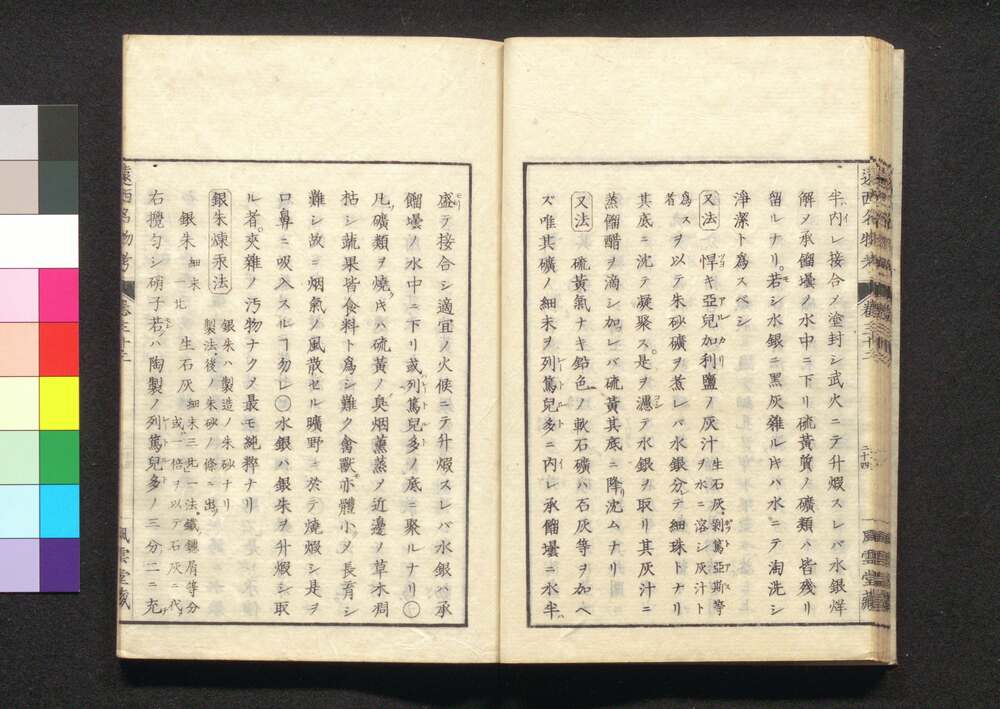 半内レ接合メ塗封シ武火ニテ升煆スレバ水銀烊
解ノ承餾壜ノ水中ニ下リ硫黄質ノ礦類ハ皆残リ
留ルナリ。若シ水銀ニ黒灰雑ルキハ水ニテ淘洗シ
淨潔ト為スベシ
又法 悍キ亞兒加利鹽ノ灰汁 生石灰、剝篤亞斯等ヲ水ニ溶シ灰汁ト
為スヲ以テ朱砂礦ヲ煮レバ水銀分テ細珠トナリ
其底ニ沈テ凝聚ス。是ヲ濾テ水銀ヲ取リ其灰汁ニ
蒸餾醋ヲ滴シ加レバ硫黄其底ニ降沈ムナリ
又法 硫黄氣ナキ鉛色ノ軟石礦ハ石灰等ヲ加ヘ
ズ唯其礦ノ細末ヲ列篤兒多ニ内レ承餾壜ニ水半
二十四
盛テ接合シ適宜ノ火候ニテ升煆スレバ水銀ハ承
餾壜ノ水中ニ下リ或列篤兒多ノ底ニ聚ルナリ○
凡礦類ヲ燒キハ硫黄ノ臭烟薰蒸ノ近邊ノ草木凋
枯シ蔬果皆食料ト為シ難ク禽獣亦體小メ長育シ
難シ故ニ烟氣ノ風散セル曠野ニ於テ燒煆シ是ヲ
口鼻ニ吸入スルヿ勿レ○水銀ハ銀朱ヲ升煆シ取
ル者。夾雜ノ汚物ナクメ最モ純粹ナリ
銀朱煉汞法 銀朱ハ製造ノ朱砂ナリ
製法後ノ朱砂ノ條ニ出
銀朱 細末一比 生石灰 細末三比一法鐵鏽屑等分
或一倍ヲ以テ石灰ニ代
右攪勻シ硝子若ハ陶製ノ列篤兒多ノ三分二ニ充
遠西名物考
風雲堂蔵